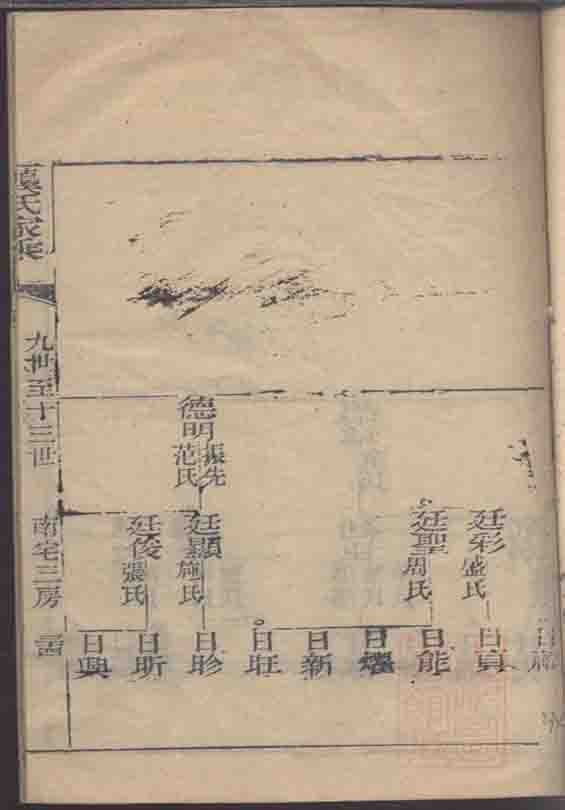 德明
振先
范氏
廷彩
盛氏
廷聖
周氏
廷顯
施氏
廷俊
張氏
日貢
日能
日燿
日新
日旺
日昣
日昕
日興
氏家乘
九世至十三世
南宅三房